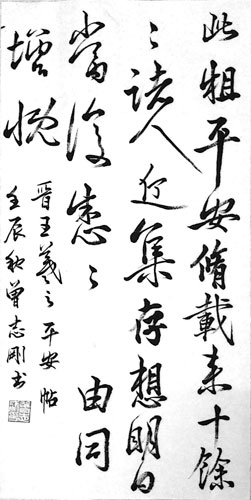 此粗平安脩載来十餘
々諸人近集存想明日
當復悉々由同
增慨
晉王羲之平安帖
壬辰秋曾志剛书